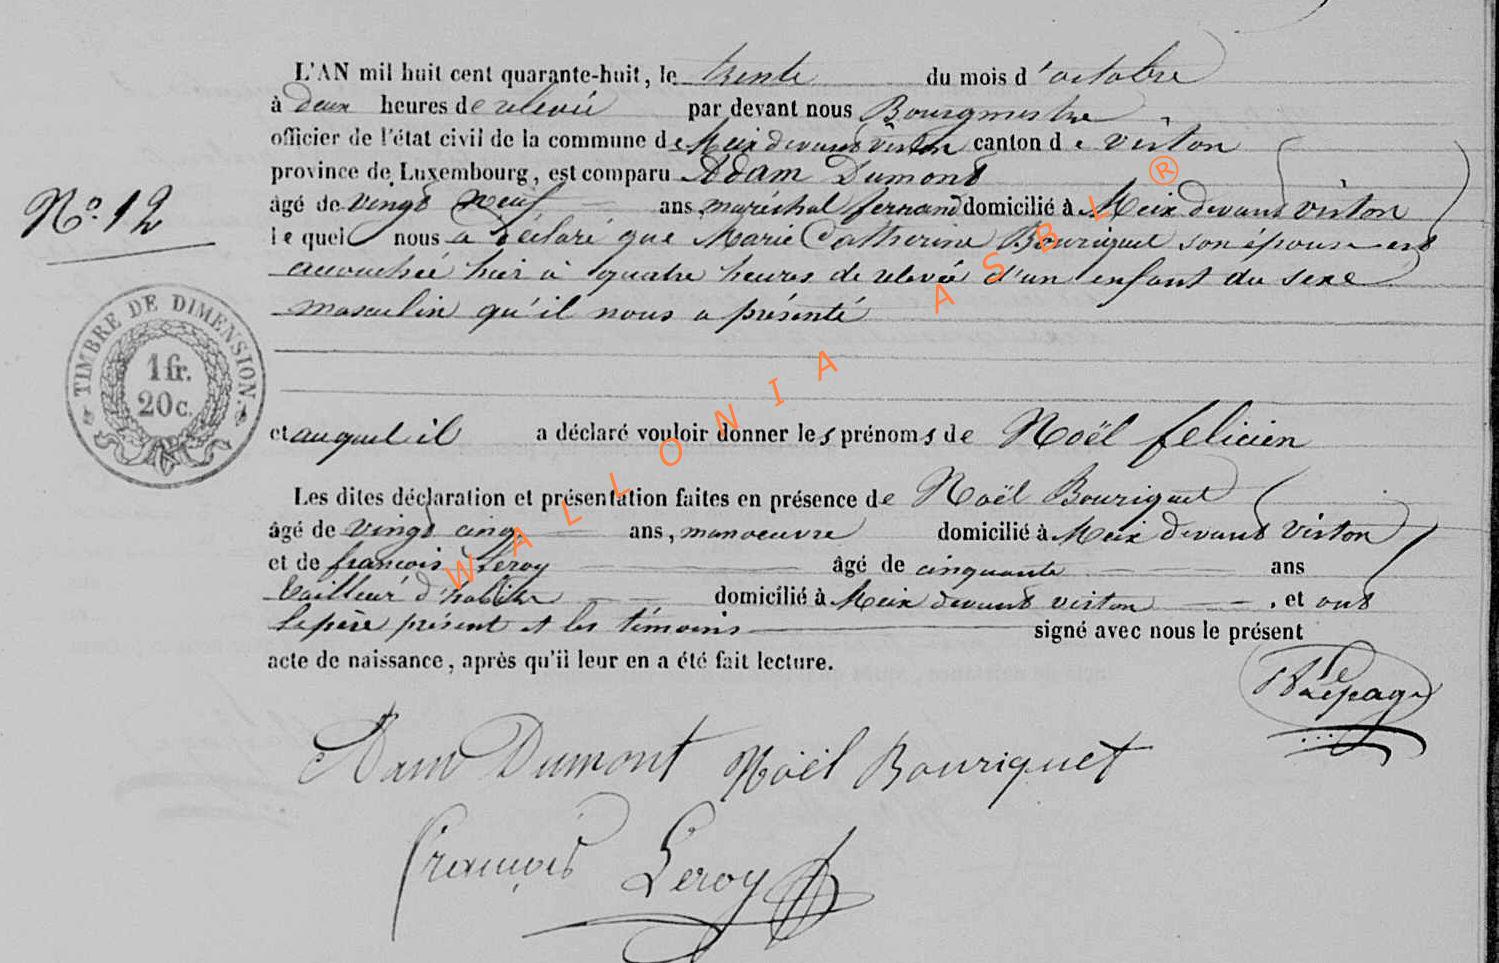 L'AN mil huit cent quarante-huit, le trente du mois d'octobre
à deux heures de relevée par devant nous Bourgmestre
officier de l'état civil de la commune de Meix devant virton canton de virton
province de Luxembourg, est comparu Adam Dumont
N° 12
âgé de vingt neuf ans, maréchal ferrand domicilié à Meix devant virton
lequel nous a déclaré que Marie Catherine Bouriquet son épouse est
accouchée hier à quatre heures de relevée d'un enfant du sexe
masculin qu'il nous a présenté
TIMBRE DE DIMENSION.
1 fr.
20 c.
et auquel il a déclaré vouloir donner les prénoms de Noël felicien
Les dites déclaration et présentation faites en présence de Noël Bouriquet
âgé de vingt cinq ans, manoeuvre domicilié à Meix devant virton
et de françois Leroy âgé de cinquante ans
tailleur d'habits domicilié à Meix devant virton, et ont
le père présent et les témoins signé avec nous le présent
acte de naissance, après qu'il leur en a été fait lecture.
Lepage
Adam Dumont Noël Bouriquet
François Leroy
WALLONIA ASBL ®